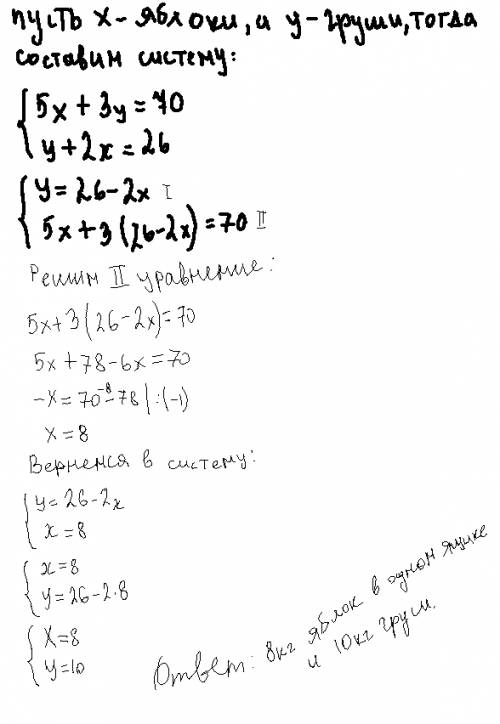 пусть x - яблоки, а y - груши, тогда
составим систему:
{ 5x + 3y = 70
{ y + 2x = 26
{ y = 26 - 2x I
{ 5x + 3(26 - 2x) = 70 II
Решим II уравнение:
5x + 3(26 - 2x) = 70
5x + 78 - 6x = 70
-x = 70 - 78 | : (-1)
-8
x = 8
Вернемся в систему:
{ y = 26 - 2x
{ x = 8
{ x = 8
{ y = 26 - 2·8
{ x = 8
{ y = 10
Ответ: 8кг яблок в одном ящике
и 10кг груш.